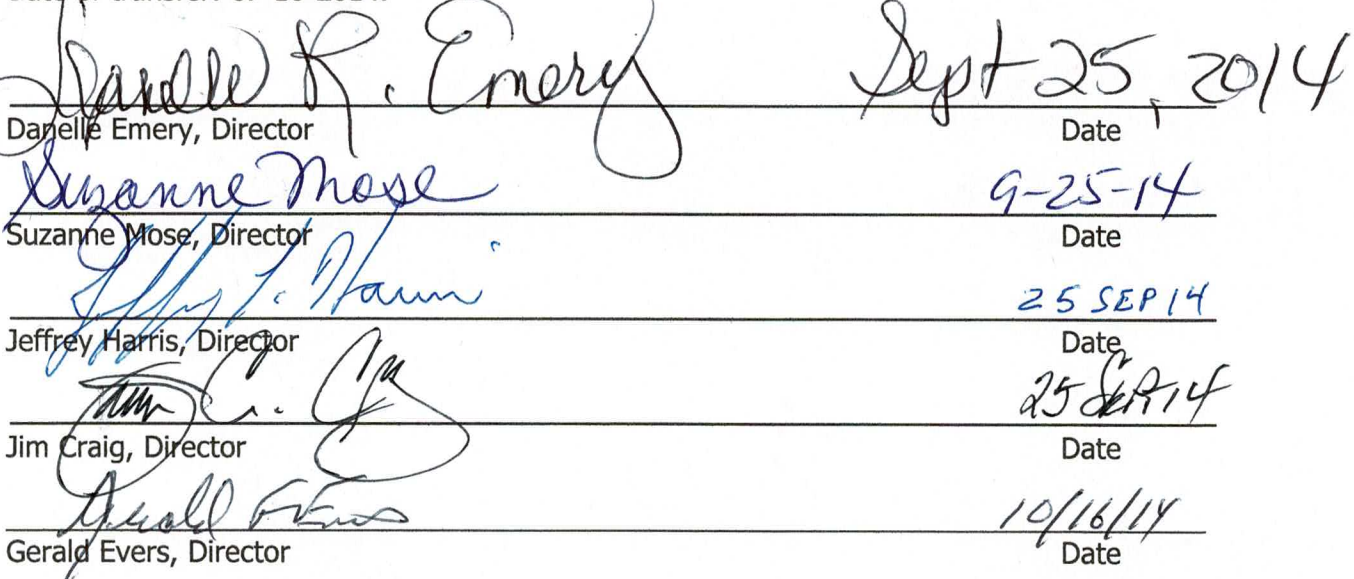 Danelle R. Emery Sept 25, 2014
Danelle Emery, Director Date
Suzanne Mose 9-25-14
Suzanne Mose, Director Date
Jeffrey L. Harris 25 SEP 14
Jeffrey Harris, Director Date
25 SEP 14
Jim Craig, Director Date
Gerald Evers 10/16/14
Gerald Evers, Director Date